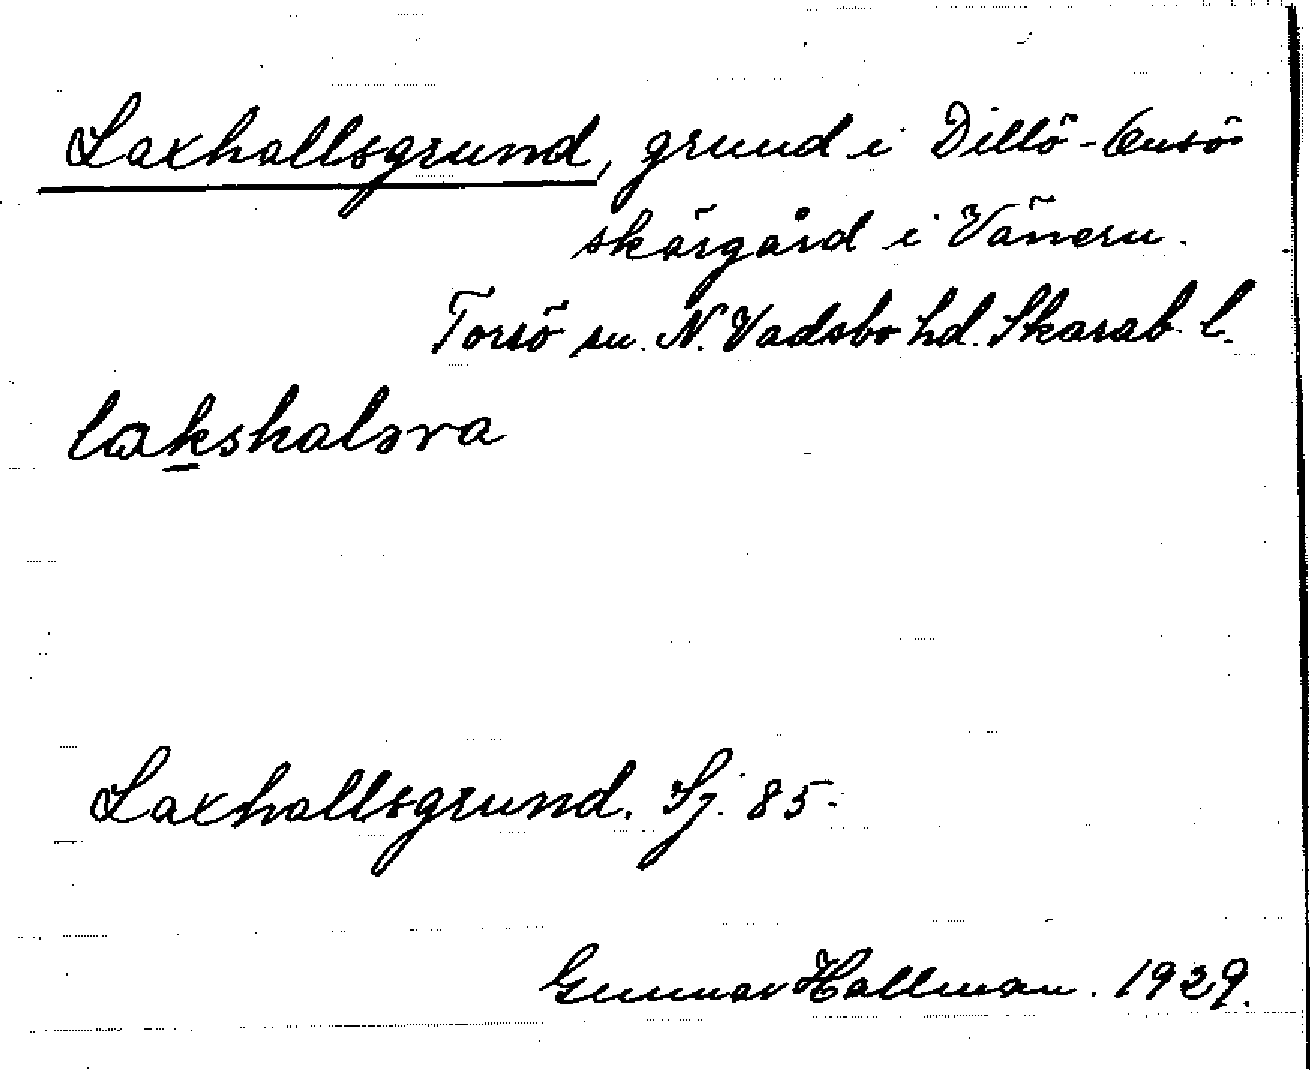 Laxhallsgrund, grund i Dillö-Onsö
skärgård i Vänern.
Torsö sn. N. Vadsbo hd. Skarab. l.
lakshalsra
Laxhallsgrund. Sj. 85.
Gunnar Hallman. 1929.